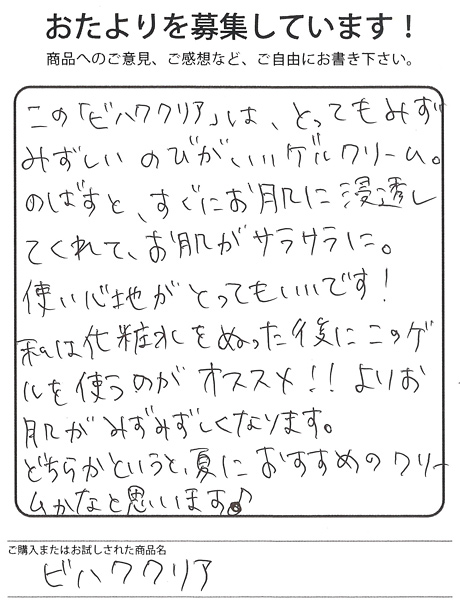 おたよりを募集しています！
商品へのご意見、ご感想など、ご自由にお書き下さい。
この「ビハククリア」は、とってもみず
みずしい のびがいいゲルクリーム。
のばすと、すぐにお肌に浸透し
てくれて、お肌がサラサラに。
使い心地がとってもいいです！
私は化粧水をぬった後にこのゲ
ルを使うのがオススメ!! よりお
肌がみずみずしくなります。
どちらかというと、夏におすすめのクリー
ムかなと思います♪
ご購入またはお試しされた商品名
ビハククリア